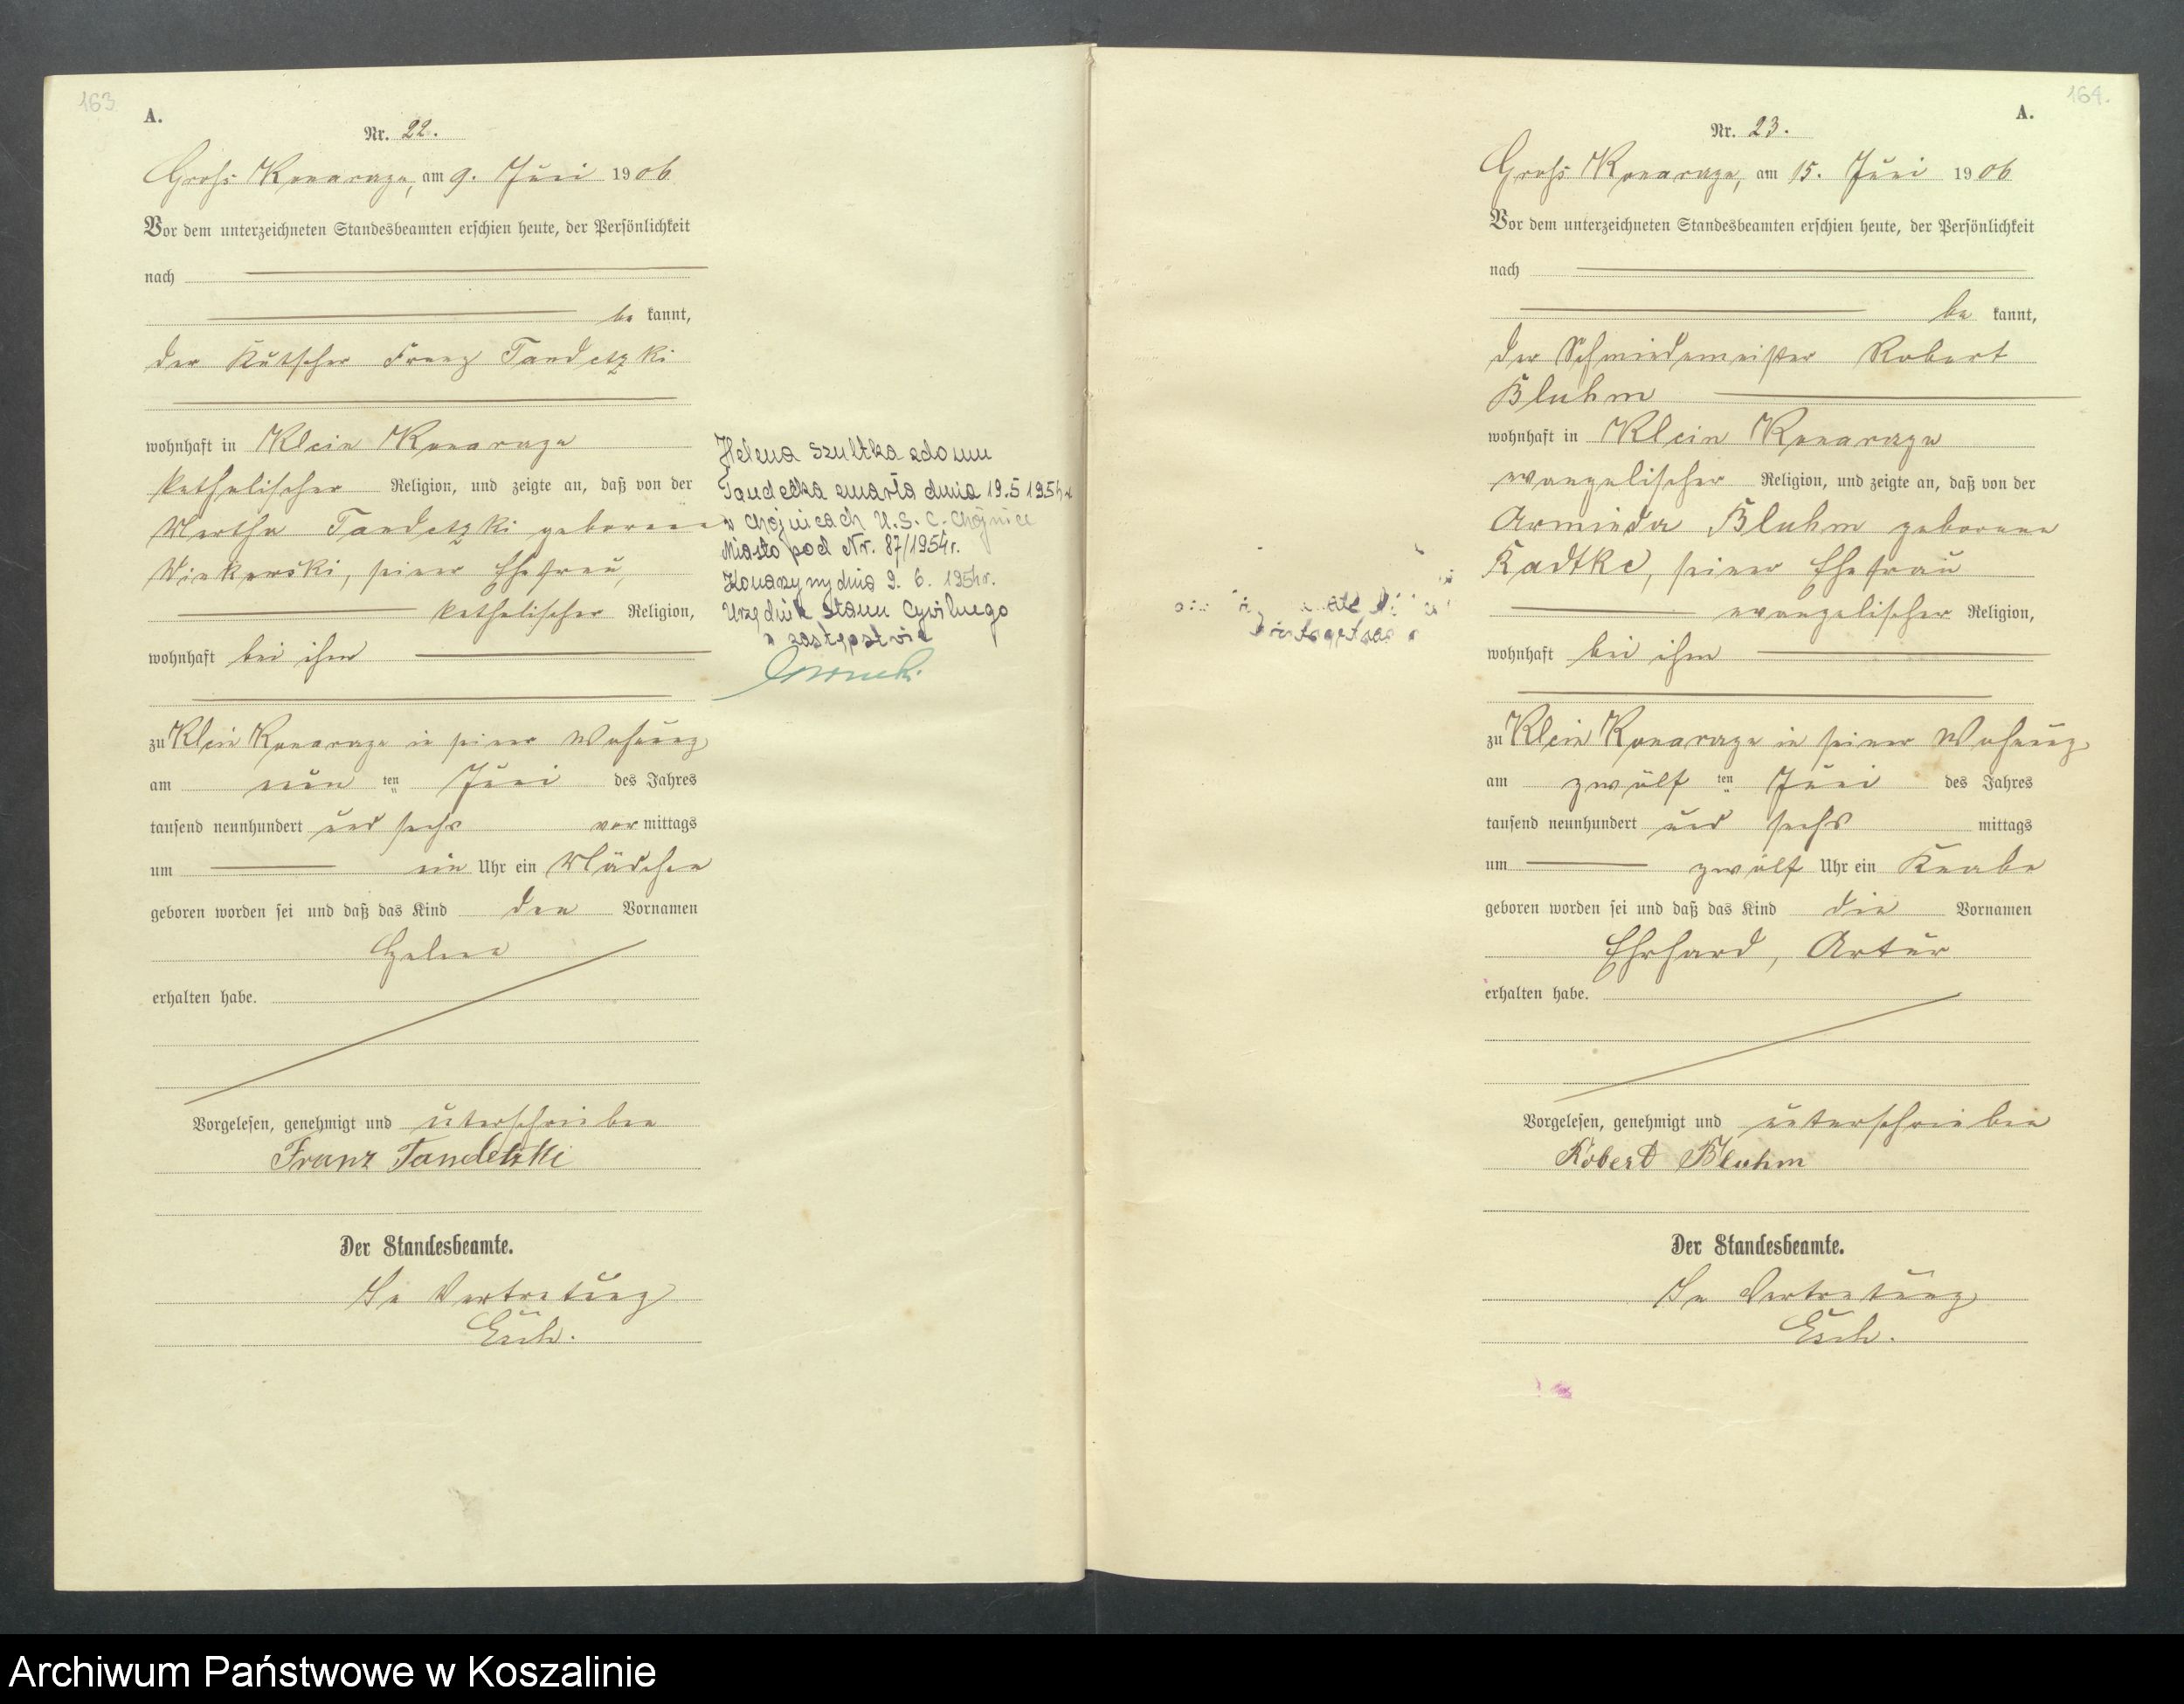 163.
A.
Nr. 22.
Gross Konarczyn, am 9. Juni 1906
Vor dem unterzeichneten Standesbeamten erschien heute, der Persönlichkeit
nach
be kannt,
der Kutscher Franz Tandetzki
wohnhaft in Klein Konarczyn
katholischer Religion, und zeigte an, daß von der
Martha Tandetzki geborene
seiner Ehefrau,
katholischer Religion,
wohnhaft bei ihm
zu Klein Konarczyn in seiner Wohnung
am neun ten Juni des Jahres
tausend neunhundert und sechs vor mittags
um ein Uhr ein Mädchen
geboren worden sei und daß das Kind den Vornamen
Helene
erhalten habe.
Vorgelesen, genehmigt und unterschrieben
Franz Tandetzki
Der Standesbeamte.
In Vertretung
Helena Szultka zdomu
Tandecka zmarła dnia 19.5 1954r
w Chojnicach U.S.C. Chojnice
Miasto pod Nr. 87/1954r.
Konarzyny dnia 9. 6. 1954r.
Urzędnik Stanu Cywilnego
w zastępstwie
164.
A.
Nr. 23.
Gross Konarczyn, am 15. Juni 1906
Vor dem unterzeichneten Standesbeamten erschien heute, der Persönlichkeit
nach
be kannt,
der Schmiedemeister Robert
Bluhm
wohnhaft in Klein Konarczyn
evangelischer Religion, und zeigte an, daß von der
Bluhm geborene
Radtke, seiner Ehefrau
evangelischer Religion,
wohnhaft bei ihm
zu Klein Konarczyn in seiner Wohnung
am zwölf ten Juni des Jahres
tausend neunhundert und sechs mittags
um zwölf Uhr ein Knabe
geboren worden sei und daß das Kind die Vornamen
Ehrhard, Artur
erhalten habe.
Vorgelesen, genehmigt und unterschrieben
Robert Bluhm
Der Standesbeamte.
In Vertretung
Archiwum Państwowe w Koszalinie